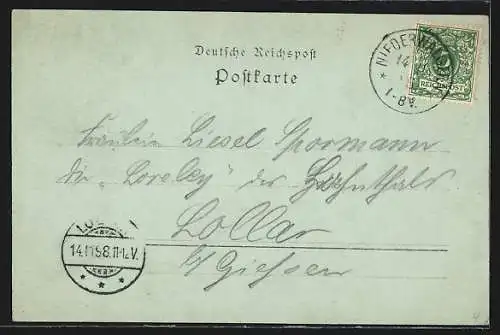 Deutsche Reichspost
Postkarte
NIEDERWALD
14
1-8V.
REICHSPOST
Fräulein Liesel Spormann
die "Loreley" des Lahnthals
Lollar
b/ Giessen
LOLLAR
14.11.98.11-12.V.